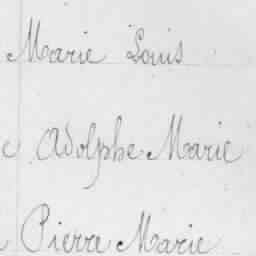 Marie Louis
e Adolphe Marie
Pierre Marie